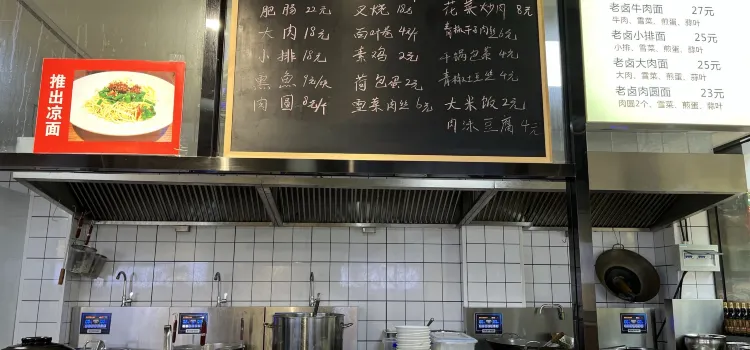 推出凉面
肥肠 22元
大肉 18元
小排 18元
黑鱼 9元/片
肉圆
叉烧
百叶卷 4个
素鸡 2元
荷包蛋 2元
雪菜肉丝 6元
花菜炒肉 8元
青椒干子肉丝 6元
干锅包菜 4元
青椒土豆丝 4元
大米饭 2元
肉沫豆腐 4元
老卤牛肉面 27元
牛肉、雪菜、煎蛋、蒜叶
老卤小排面 25元
小排、雪菜、煎蛋、蒜叶
老卤大肉面 25元
大肉、雪菜、煎蛋、蒜叶
老卤肉圆面 23元
肉圆2个、雪菜、煎蛋、蒜叶